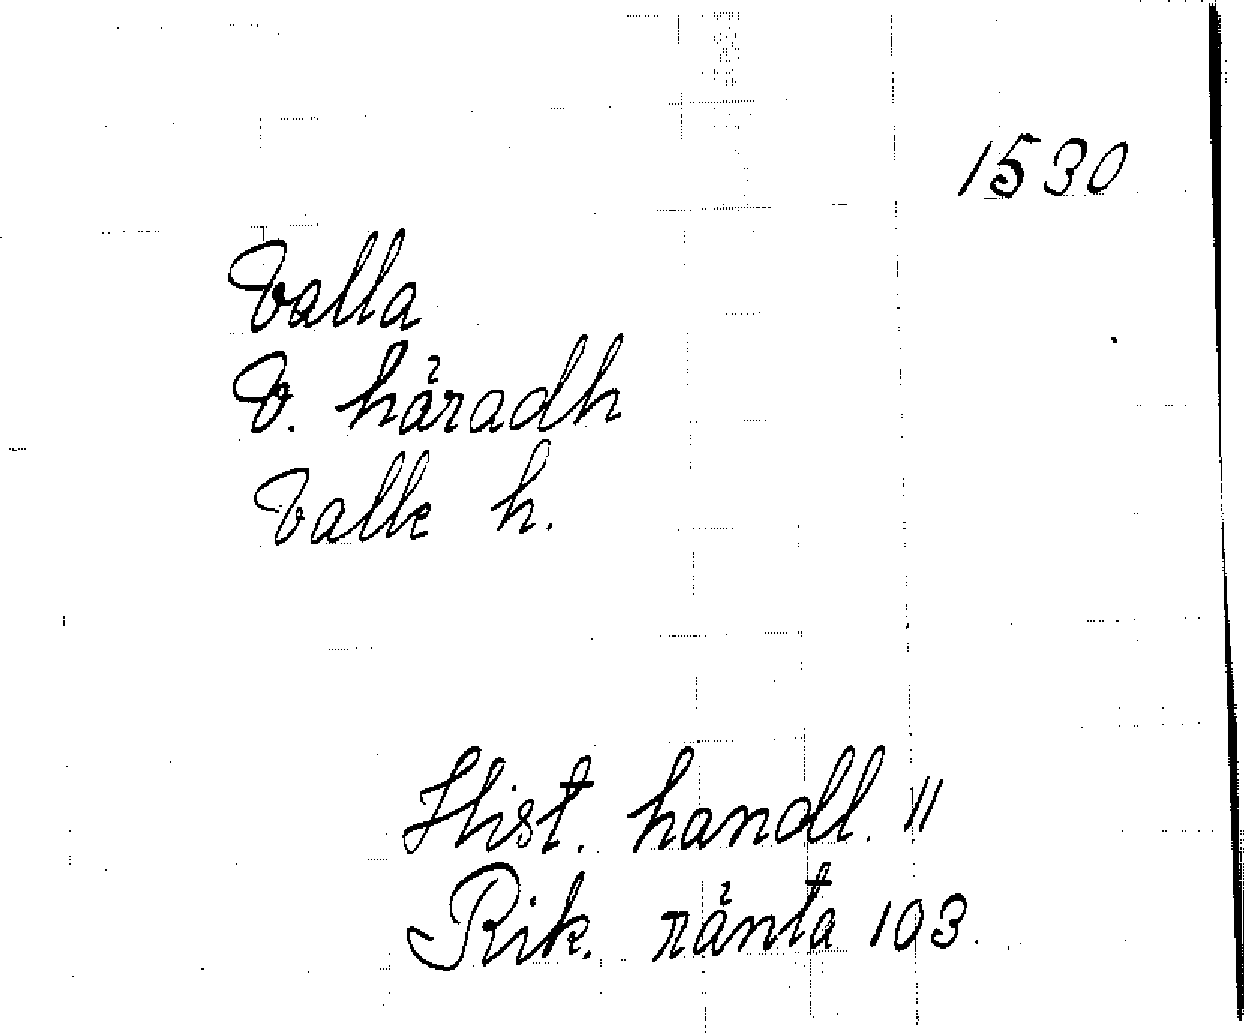 1530
Valla
V. häradh
Valle h.
Hist. handl. 11
Rik. ränta 103.